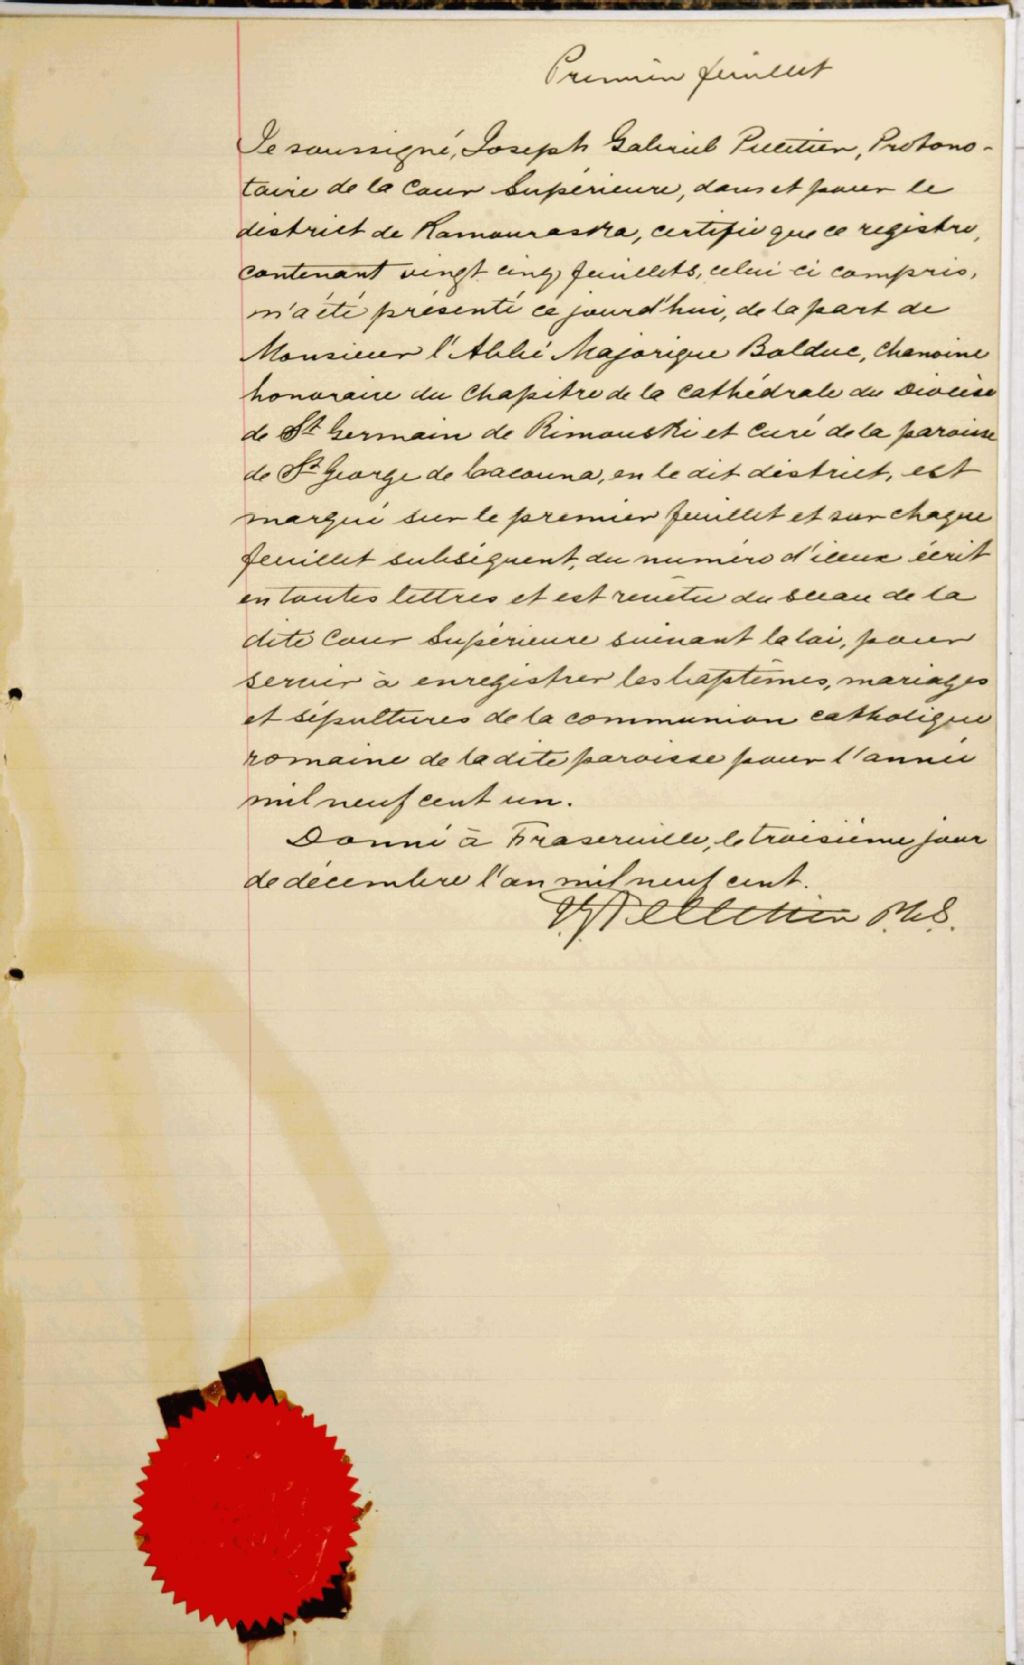 Premier feuillet
Je soussigné, Joseph Gabriel Pelletier, Protono-
taire de la Cour Supérieure, dans et pour le
district de Kamouraska, certifie que ce registre,
contenant vingt cinq feuillets, celui ci compris,
m'a été présenté ce jourd'hui, de la part de
Monsieur l'Abbé Majorique Bolduc, chanoine
honoraire du Chapitre de la cathédrale du Diocèse
de St Germain de Rimouski et curé de la paroisse
de St George de Cacouna, en le dit district, est
marqué sur le premier feuillet et sur chaque
feuillet subséquent, du numéro d'iceux écrit
en toutes lettres et est revêtu du sceau de la
dite Cour Supérieure suivant la loi, pour
servir à enregistrer les baptêmes, mariages
et sépultures de la communion catholique
romaine de la dite paroisse pour l'année
mil neuf cent un.
Donné à Fraserville, le troisième jour
de décembre l'an mil neuf cent.
J.G. Pelletier P.C.S.